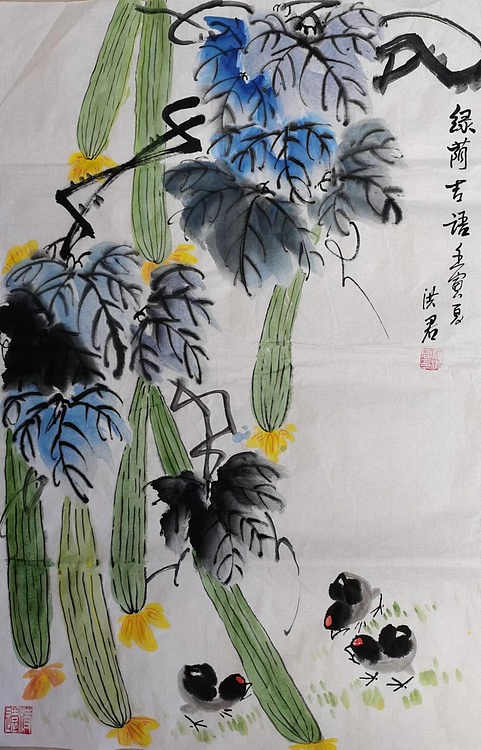 绿荫吉语
壬寅夏
洪君